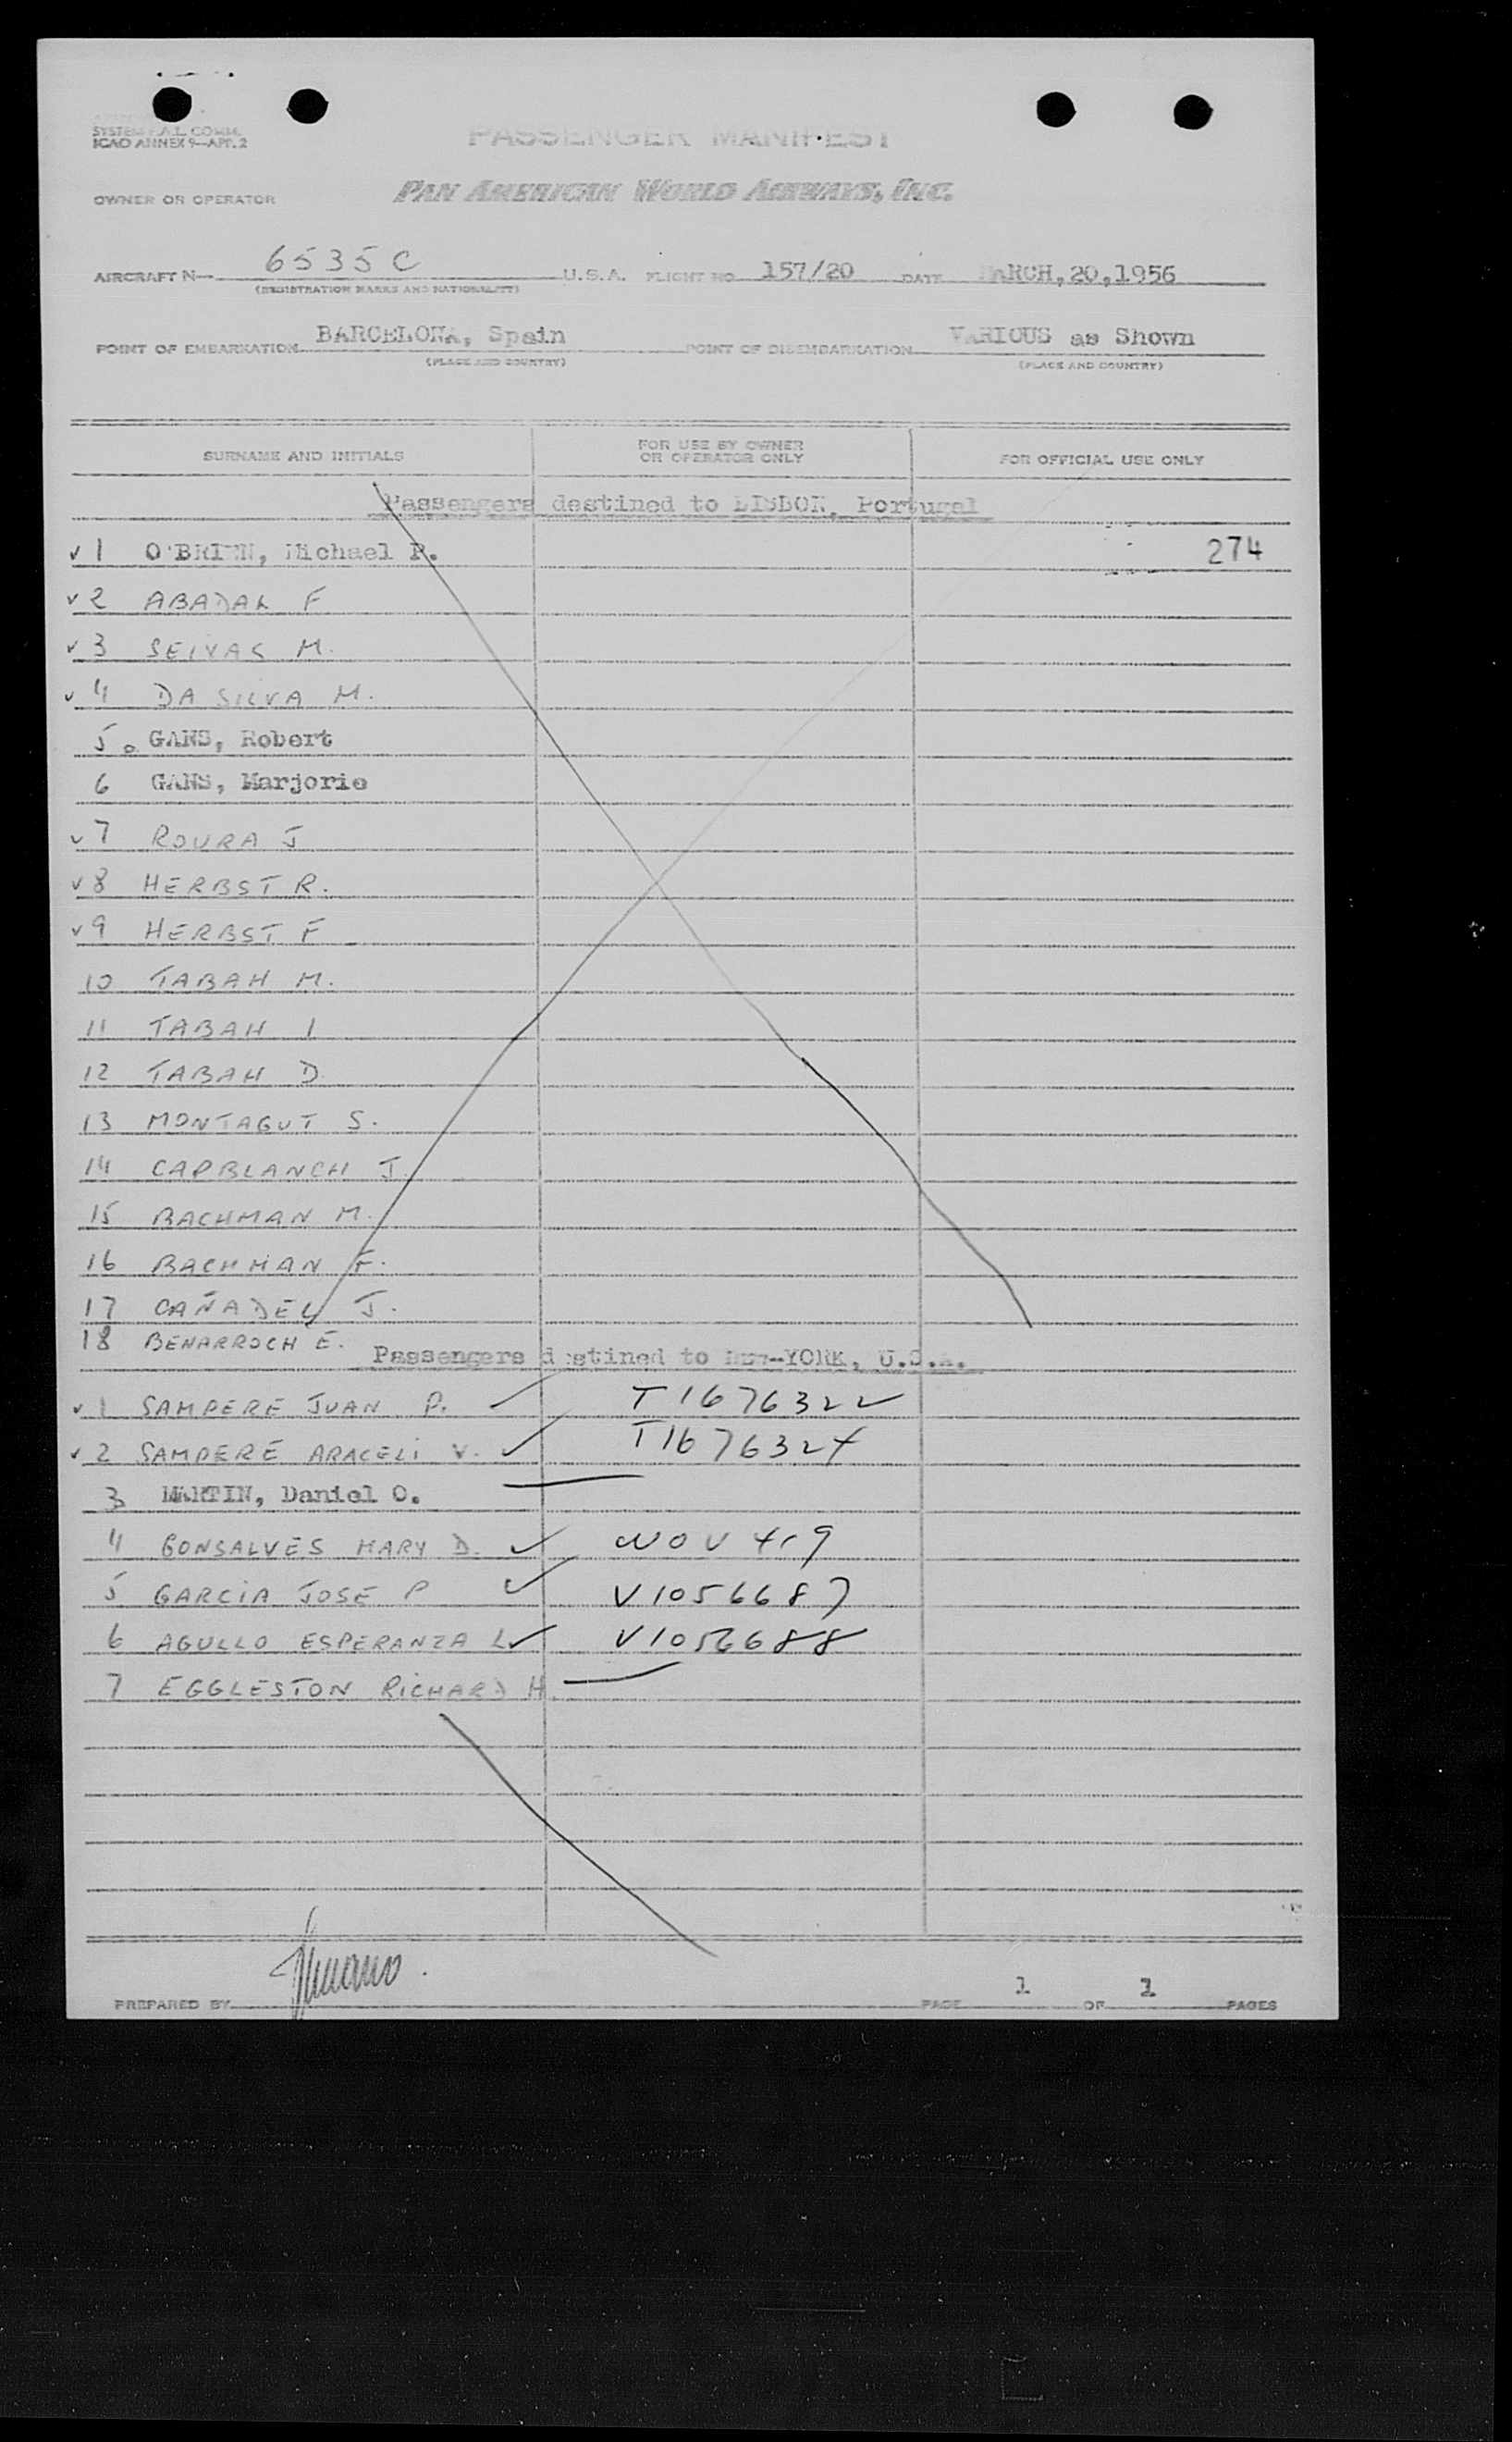 SYSTEM F.A.L. COMM.
ICAO ANNEX 9-APP. 2
PASSENGER MANIFEST
OWNER OR OPERATOR PAN AMERICAN WORLD AIRWAYS, INC.
AIRCRAFT N- 6535C U.S.A. FLIGHT NO 157/20 DATE MARCH, 20, 1956
(REGISTRATION MARKS AND NATIONALITY)
POINT OF EMBARKATION BARCELONA, Spain POINT OF DISEMBARKATION VARIOUS as Shown
(PLACE AND COUNTRY) (PLACE AND COUNTRY)
SURNAME AND INITIALS FOR USE BY OWNER OR OPERATOR ONLY FOR OFFICIAL USE ONLY
Passengers destined to LISBON, Portugal
✓ 1 O'BRIEN, Michael P. 274
✓ 2 ABADAL F
✓ 3 SEIVAS M.
✓ 4 DA SILVA M.
5 GANS, Robert
6 GANS, Marjorie
✓ 7 ROURA J
✓ 8 HERBST R.
✓ 9 HERBST F
10 TABAH M.
11 TABAH I
12 TABAH D
13 MONTAGUT S.
14 CAPBLANCH J.
15 BACHMAN M.
16 BACHMAN F.
17 CAÑADELL J.
18 BENARROCH E.
Passengers destined to New-YORK, U.S.A.
✓ 1 SAMPERE JUAN P. ✓ T1676322
✓ 2 SAMPERE ARACELI V. ✓ T1676324
3 MARTIN, Daniel O. —
4 GONSALVES MARY D. ✓
5 GARCIA JOSE P ✓ V1056687
6 AGULLO ESPERANZA L ✓ V1056688
7 EGGLESTON RICHARD H. —
PREPARED BY PAGE 1 OF 1 PAGES